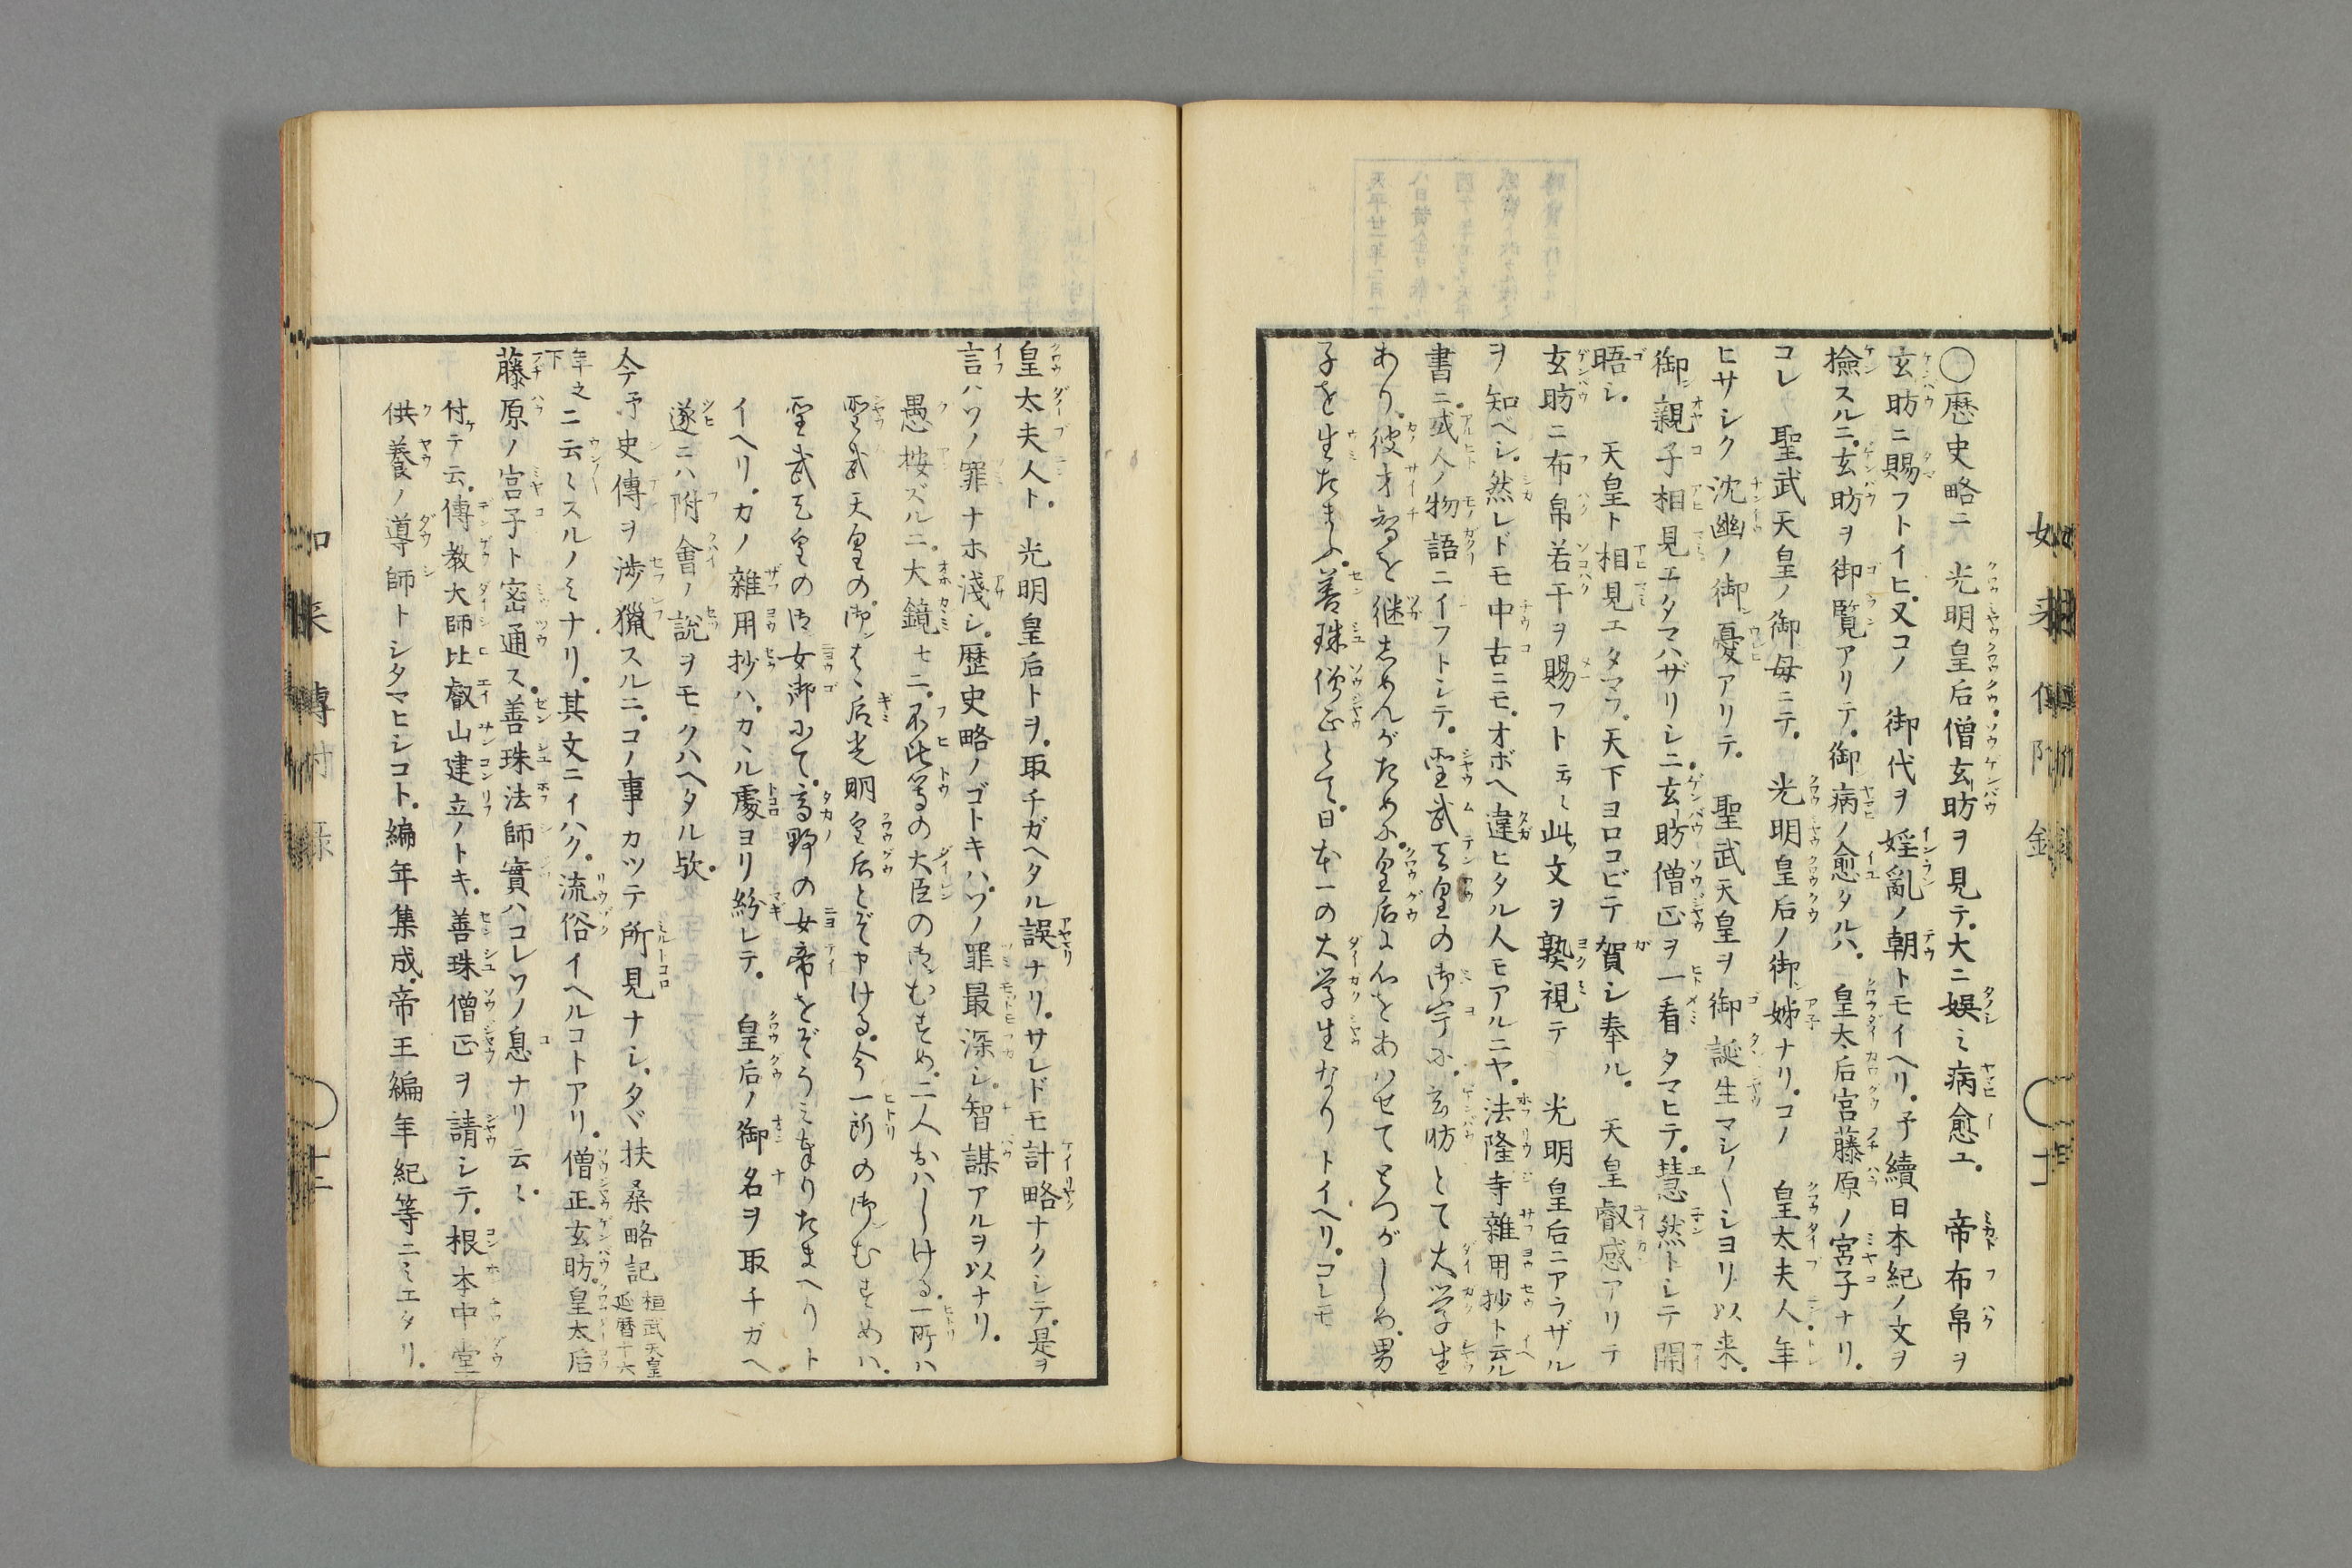 ◯歴史略ニ 光明皇后僧玄昉ヲ見テ大ニ娯ミ病愈ユ。 帝布帛ヲ
玄昉ニ賜フトイヒ。又コノ 御代ヲ婬亂ノ朝トモイヘリ。予續日本紀ノ文ヲ
撿スルニ。玄昉ヲ御覧アリテ。御病ノ愈タルハ。 皇太后宮藤原ノ宮子ナリ。
コレ 聖武天皇ノ御母ニテ。 光明皇后ノ御姊ナリ。コノ 皇太夫人年
ヒサシク沈幽ノ御憂アリテ。 聖武天皇ヲ御誕生マシ〳〵シヨリ以来。
御親子相見エタマハザリシニ。玄昉僧正ヲ一看タマヒテ。慧然トシテ開
晤シ。 天皇ト相見エタマフ。天下ヨロコビテ賀シ奉ル。 天皇叡感アリテ
玄昉ニ布帛若干ヲ賜フト云〻此文ヲ孰視テ 光明皇后ニアラザル
ヲ知ベシ。然レドモ中古ニモ。オボヘ違ヒタル人モアルニヤ。法隆寺雜用抄ト云ル
書ニ。或人ノ物語ニイフトシテ。聖武天皇の御宇に。玄昉とて大学生
あり。彼才智を継しめんがために。皇后に心をあはせてとつがしめ。男
子を生たまふ。善珠僧正とて。日本一の大学生なりトイヘリ。コレモ
皇太夫人ト。 光明皇后トヲ。取チガヘタル誤ナリ。サレドモ計略ナクシテ。是ヲ
言ハソノ罪ナホ淺シ。歴史略ノゴトキハ。ソノ罪最深シ。智謀アルヲ以ナリ。
愚按ズルニ。大鏡七ニ。不比等の大臣の御むすめ。二人おハしける。一所ハ
聖武天皇の。御はゝ后光明皇后とぞ申ける。今一所の御むすめハ。
聖武天皇の御女御にて。高野の女帝をぞうミ奉りたまへりト
イヘリ。カノ雜用抄ハ。カヽル處ヨリ紛レテ。 皇后ノ御名ヲ取チガヘ。
遂ニハ附會ノ説ヲモクハヘタル歟。
今予史傳ヲ渉獵スルニ。コノ事カツテ所見ナシ。タヾ扶桑略記 桓武天皇延暦十六
年之下ニ云〻スルノミナリ。其文ニイハク。流俗イヘルコトアリ。僧正玄昉。皇太后
藤原ノ宮子ト密通ス。善珠法師實ハコレソノ息ナリ云〻。
付ケテ云。傳教大師比叡山建立ノトキ。善珠僧正ヲ請シテ。根本中堂
供養ノ導師トシタマヒシコト。編年集成。帝王編年紀等ニミエタリ。